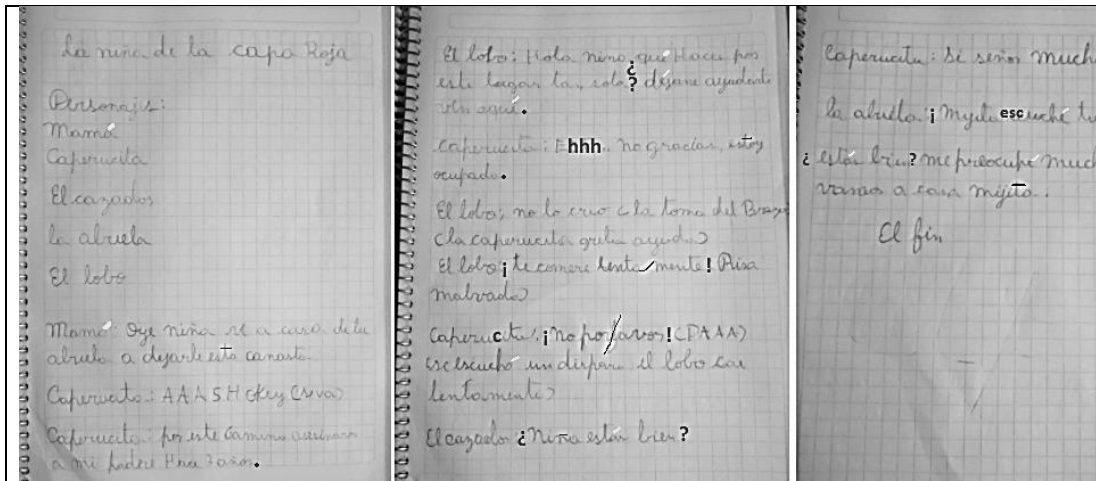 La niña de la capa Roja
Personajes:
Mamá
Caperucita
El cazador
la abuela
El lobo
Mamá: Oye niña ve a casa de tu
abuela a dejarle esta canasta.
Caperucita: AAASH okey (se va)
Caperucita: por este camino asesinaron
a mi padre Hace 3 años.
El lobo: Hola niña ¿qué Haces por
este lugar tan sola? déjame ayudarte
ven aquí.
Caperucita: Ehhh.. no gracias, estoy
ocupada.
El lobo: no lo creo (la toma del Brazo)
(la caperucita grita ayuda)
El lobo: ¡te comere lentamente! (Risa
malvada)
Caperucita: ¡No por favor! (PAAA)
se escuchó un disparo el lobo cae
lentamente)
El cazador: ¿Niña estás bien?
Caperucita: Si señor much
la abuela: ¡mijita escuché tu
¿estás bien? me preocupé much
vamos a casa mijita..
El fin